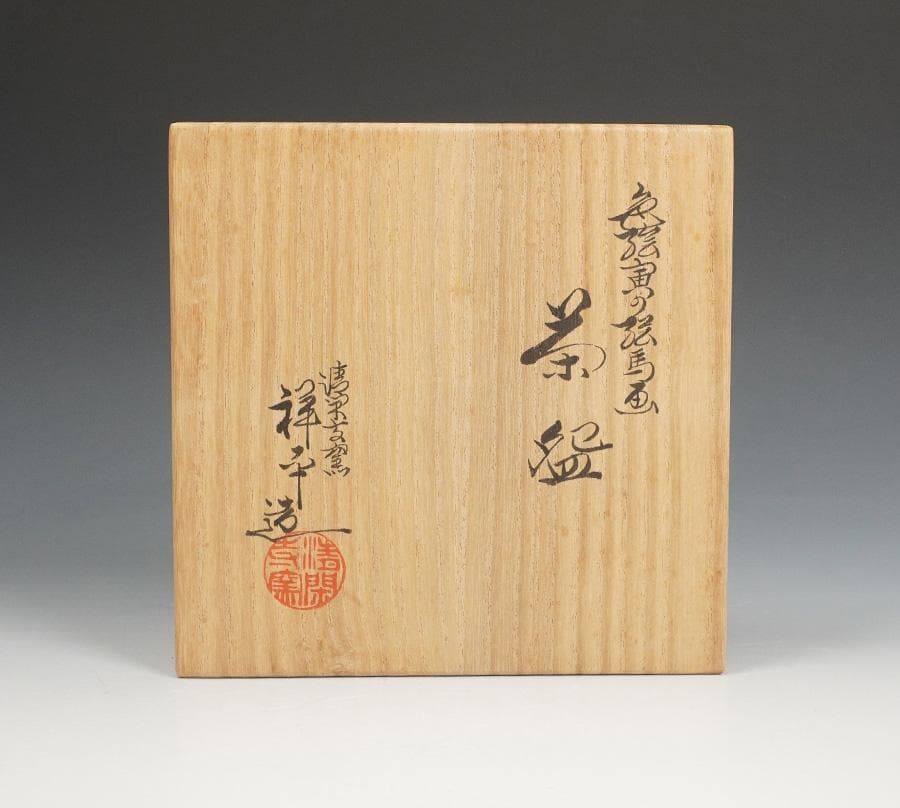 色絵寅の絵馬画
茶盌
清閑寺窯
祥平造
清閑寺窯